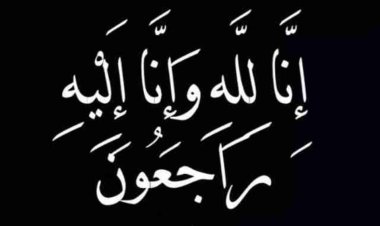 إِنَّا لِلّٰه وَإِنَّا إِلَيْهِ
رَاجَعُونَ